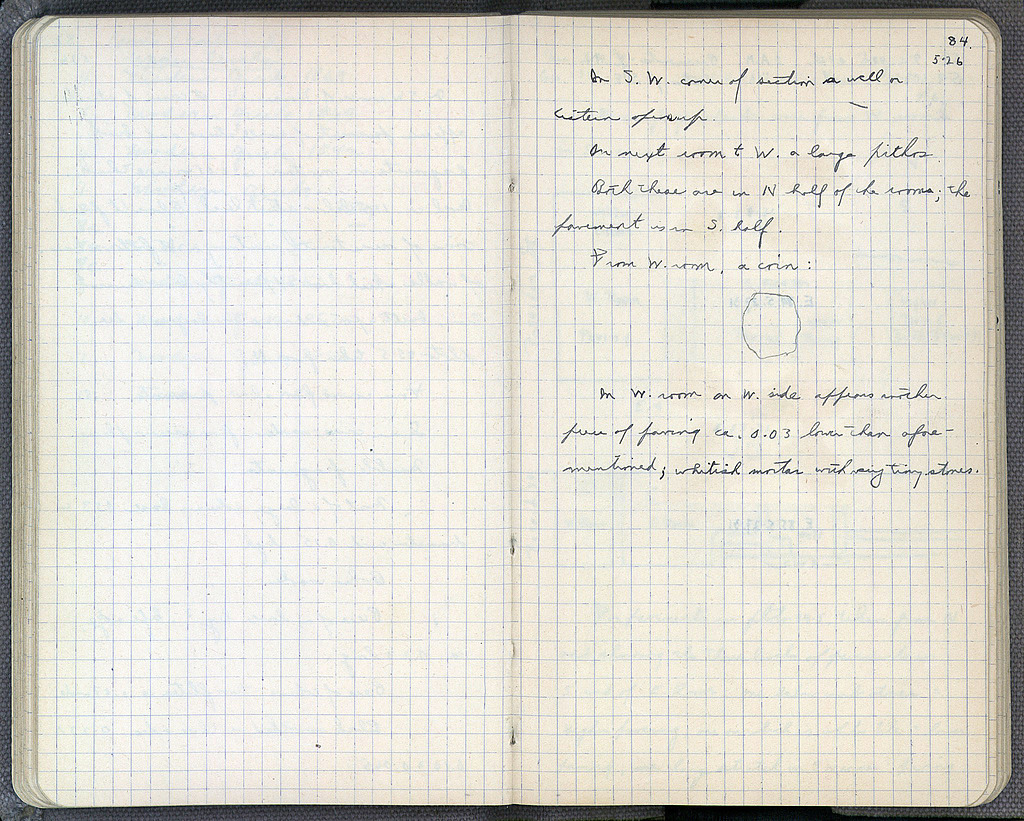 84.
5·26
In S. W. corner of section a well or
cistern opens up.
In next room to W. a large pithos.
Both these are in N half of the rooms; the
pavement is in S. half.
From W. room, a coin:
In W. room on W. side appears another
piece of paving ca. 0.03 lower than afore-
mentioned; whitish mortar with very tiny stones.